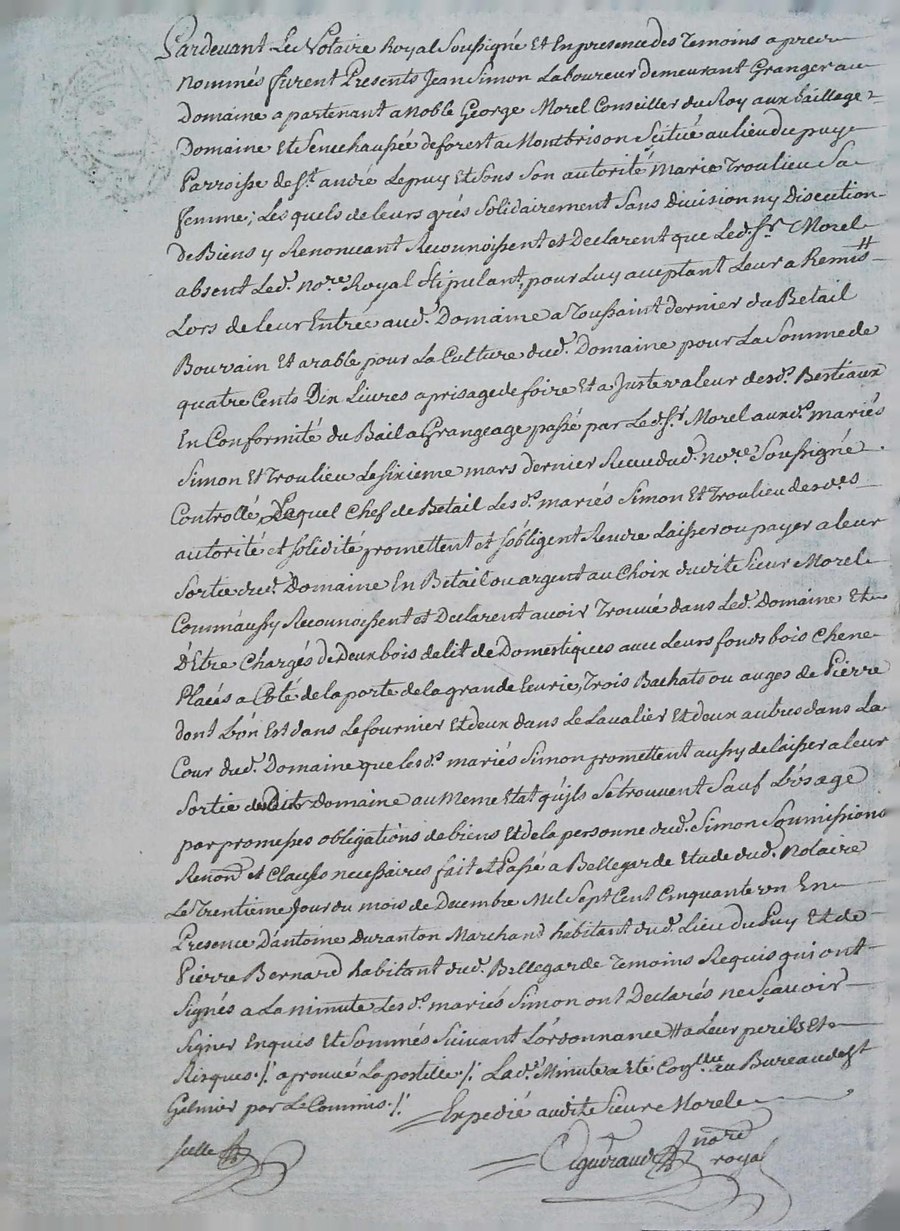 Pardevant Le Notaire Royal Soussigné Et En presence des Temoins apres
nommés furent Presents Jean Simon Laboureur demeurant Granger au
Domaine apartenant a Noble George Morel Conseiller du Roy aux bailliage
Domaine Et Senechaussée de forest a Montbrison Scitué au lieu du puy
Parroisse de St. andré Le puy Et Sous Son autorité Marie Troulieu Sa
femme; Les quels de leurs grés Solidairement Sans division ny Discution
de Biens y Renonceant Reconnoissent et Declarent que Led. Sr. Morel
absent Led. No.re Royal Stipulant, pour Luy aceptant Leur a Remitt
Lors de leur Entrée aud. Domaine a Toussaint dernier du Betail
Bouvain Et arable pour La Culture dud. Domaine pour La Somme de
quatre Cents Dix Livres a prisage de foire Et a Juste valeur desd. Bestiaux
En Conformité du Bail a Grangeage passé par Led. Sr. Morel auxd. mariés
Simon Et Troulieu Le Sixieme mars dernier Receu dud. No.re Soussigné
Controllé, Lequel Chef de Betail Lesd. mariés Simon Et Troulieu desd.es
autorité et solidité promettent et s'obligent Rendre Laisser ou payer a leur
Sortie dud. Domaine En Betail ou argent au Choix dudite Sieur Morel
Comm'aussy Reconnoissent et Declarent avoir Trouvé dans Led. Domaine Et
d'Etre Chargés de Deux bois de lit de Domestiques avec Leurs fonds bois Chene
Placés a Côté de la porte de la grande Ecurie, Trois Bachats ou auges de Pierre
dont L'ôn Est dans Le fournier Et deux dans Le Cavalier Et deux autres dans La
Cour dud. Domaine que lesd. mariés Simon promettent aussy de laisser a leur
Sortie dudit Domaine au Meme Etat qu'ils Se trouvent Sauf L'usage
par promesses obligations de biens Et de la personne dud. Simon Soumissions
Renon.on et Clauses necessaires fait et Passé a Bellegarde Etude dud. Notaire
Le Trentieme Jour du mois de Decembre Mil Sept Cent Cinquante un En
Presence D'antoine Duranton Marchand habitant dud. Lieu du Puy Et de
Pierre Bernard habitant dud. Bellegarde Temoins Requis qui ont
Signés a La minute Lesd. mariés Simon ont Declarés ne Sçavoir
Signer Enquis Et Sommés Suivant L'ordonnance # a Leur perils Et
Risques ./. aprouvé La postille ./. Lad.e Minute a Eté Con.llée au Bureau de St
Galmier par Le Commis ./.
Expedié audite Sieur Morel
scellé
Giguéraud no.re
royal